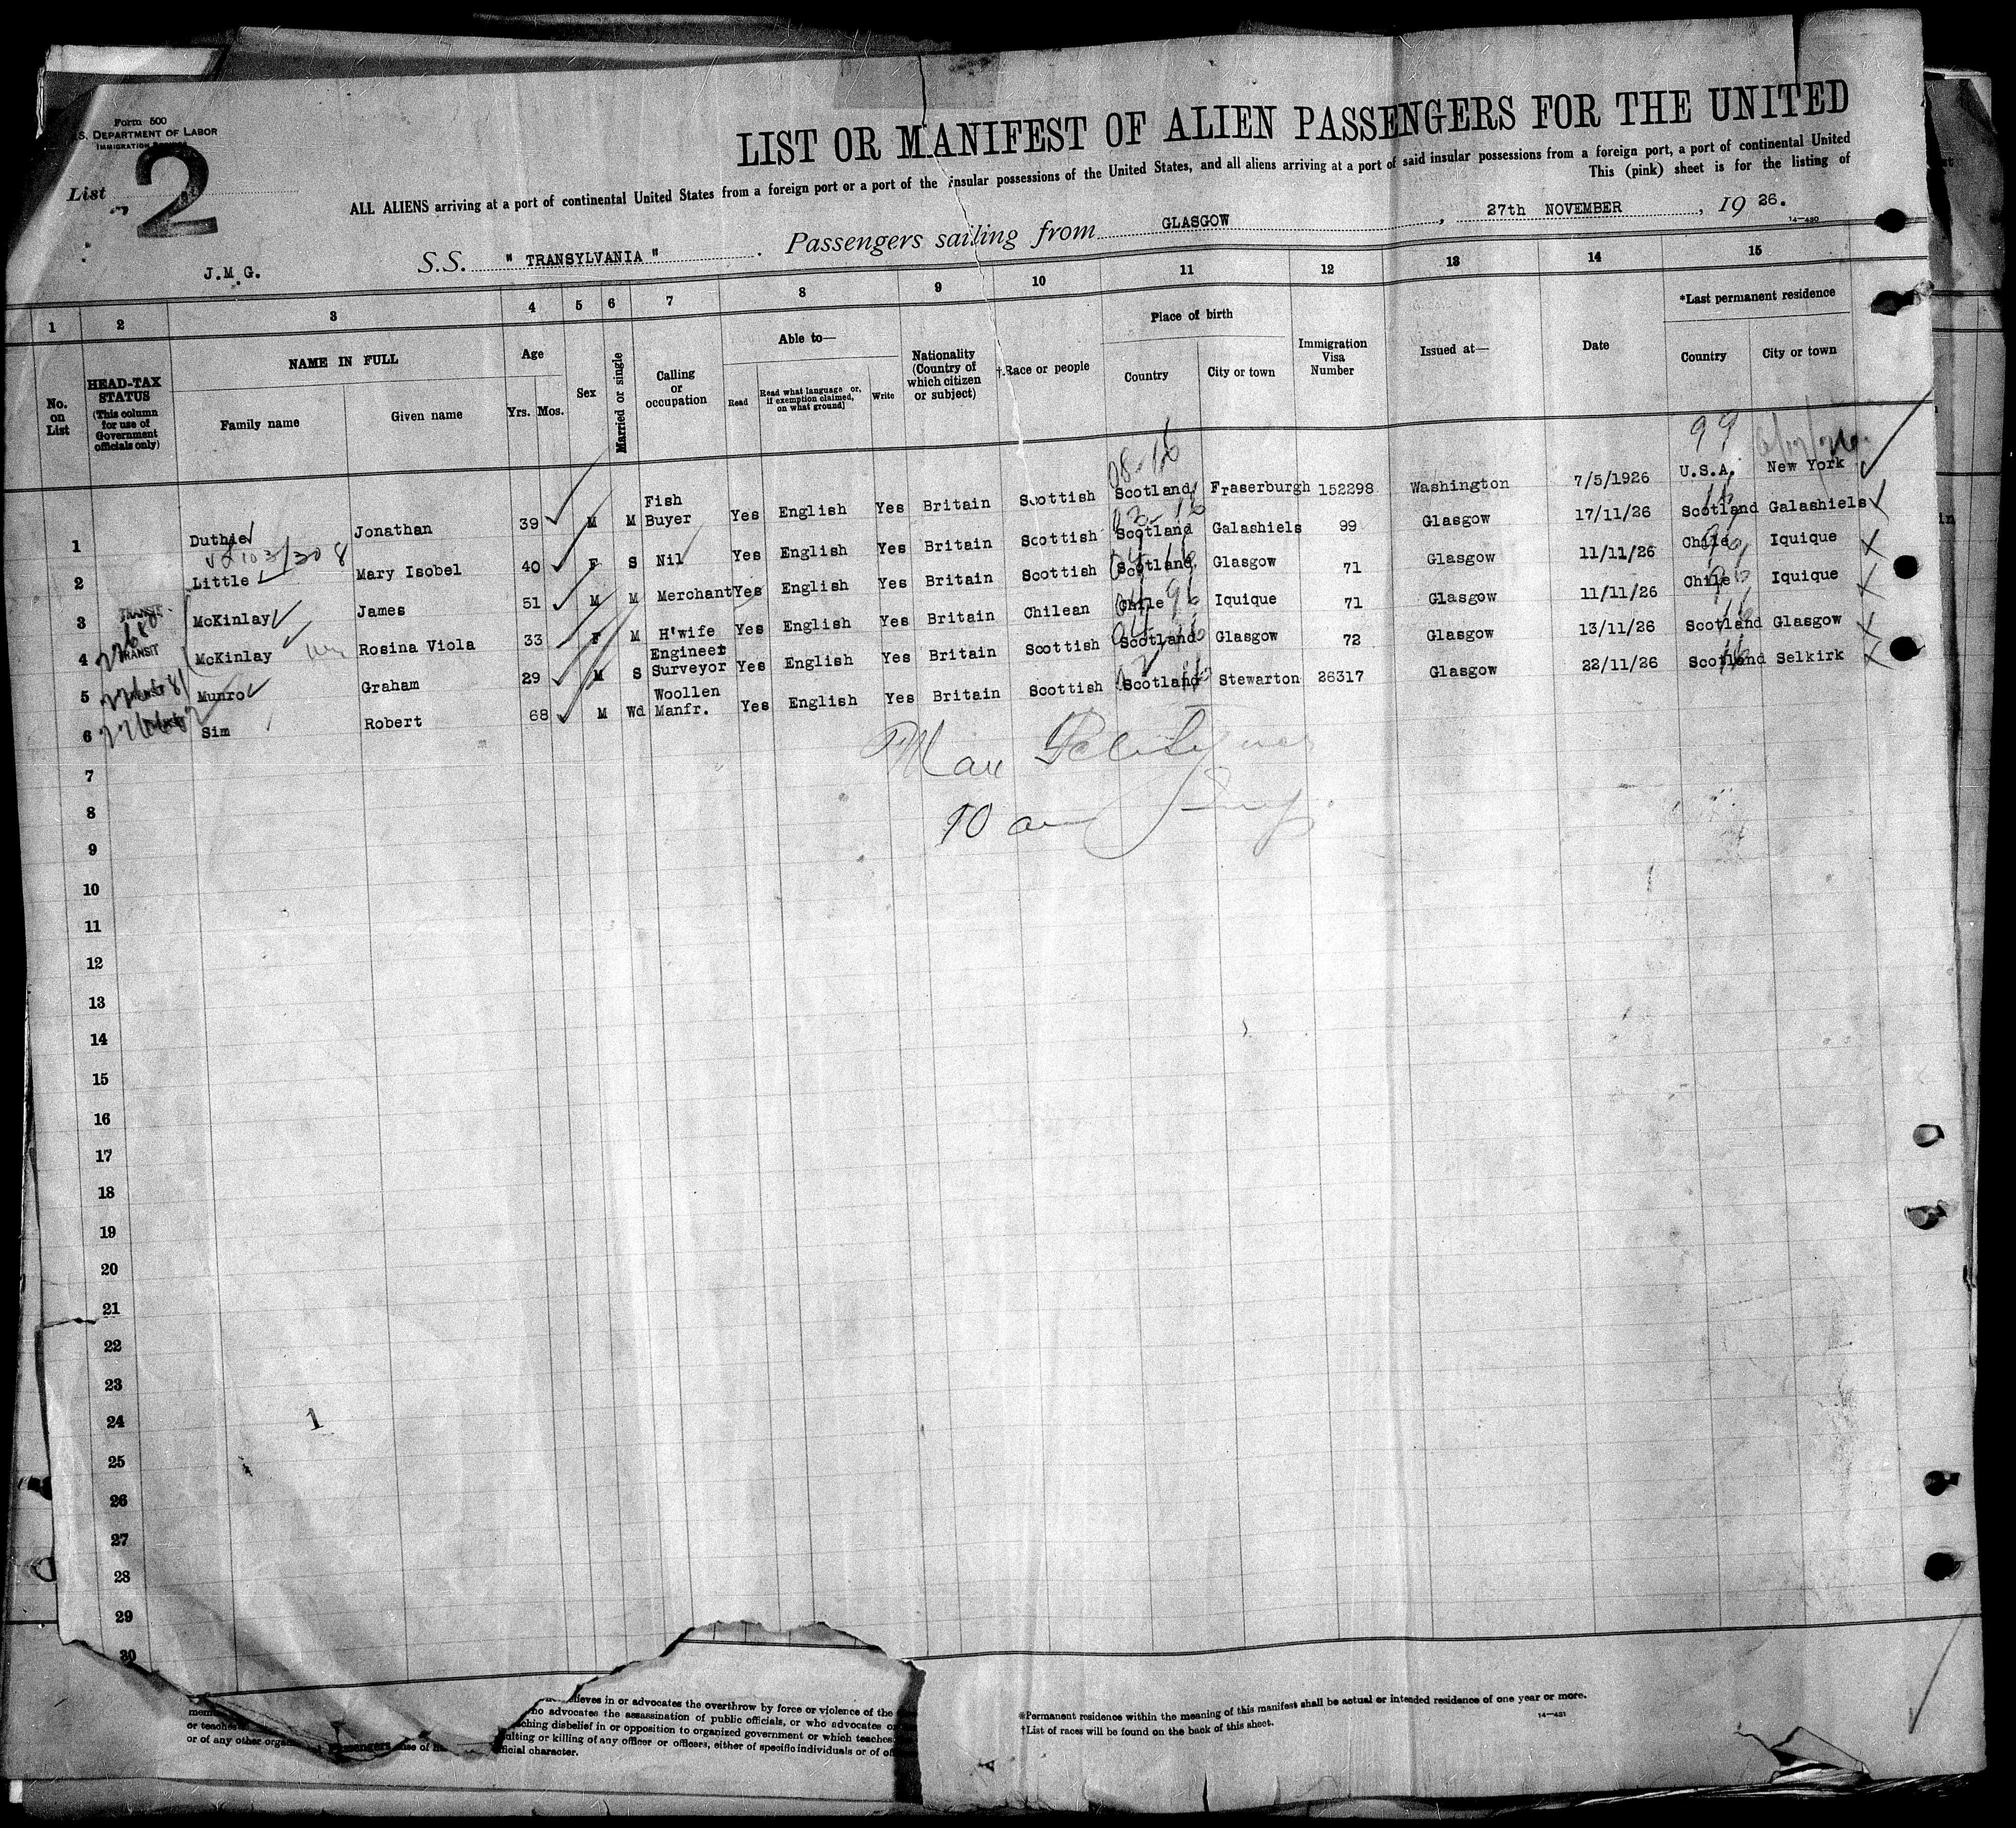 Form 500
S. DEPARTMENT OF LABOR
IMMIGRATION
List 2
LIST OR MANIFEST OF ALIEN PASSENGERS FOR THE UNITED
ALL ALIENS arriving at a port of continental United States from a foreign port or a port of the insular possessions of the United States, and all aliens arriving at a port of said insular possessions from a foreign port, a port of continental United
This (pink) sheet is for the listing of
J.M.G. S.S. " TRANSYLVANIA ". Passengers sailing from GLASGOW, 27th NOVEMBER, 19 26.
14—430
1 2 3 4 5 6 7 8 9 10 11 12 13 14 15
No. on List
HEAD-TAX STATUS (This column for use of Government officials only)
NAME IN FULL
Family name Given name
Age
Yrs. Mos.
Sex
Married or single
Calling or occupation
Able to—
Read Read what language or, if exemption claimed, on what ground) Write
Nationality (Country of which citizen or subject)
†Race or people
Place of birth
Country City or town
Immigration Visa Number
Issued at—
Date
*Last permanent residence
Country City or town
08-16 99
1 Duthie Jonathan 39 M M Fish Buyer Yes English Yes Britain Scottish Scotland Fraserburgh 152298 Washington 7/5/1926 U.S.A. New York
2 Little Mary Isobel 40 F S Nil Yes English Yes Britain Scottish Scotland Galashiels 99 Glasgow 17/11/26 Scotland Galashiels
3 TRANSIT McKinlay James 51 M M Merchant Yes English Yes Britain Scottish Scotland Glasgow 71 Glasgow 11/11/26 Chile Iquique
4 TRANSIT McKinlay Rosina Viola 33 F M H'wife Yes English Yes Britain Chilean Chile Iquique 71 Glasgow 11/11/26 Chile Iquique
5 Munro Graham 29 M S Engineer Surveyor Yes English Yes Britain Scottish Scotland Glasgow 72 Glasgow 13/11/26 Scotland Glasgow
6 Sim Robert 68 M Wd Woollen Manfr. Yes English Yes Britain Scottish Scotland Stewarton 26317 Glasgow 22/11/26 Scotland Selkirk
7
8
9
10
11
12
13
14
15
16
17
18
19
20
21
22
23
24 1
25
26
27
28
29
30
believes in or advocates the overthrow by force or violence of the
who advocates the assassination of public officials, or who advocates or
or teaches disbelief in or opposition to organized government or which teaches
or of any other official character.
Passengers
*Permanent residence within the meaning of this manifest shall be actual or intended residence of one year or more.
†List of races will be found on the back of this sheet.
14—431